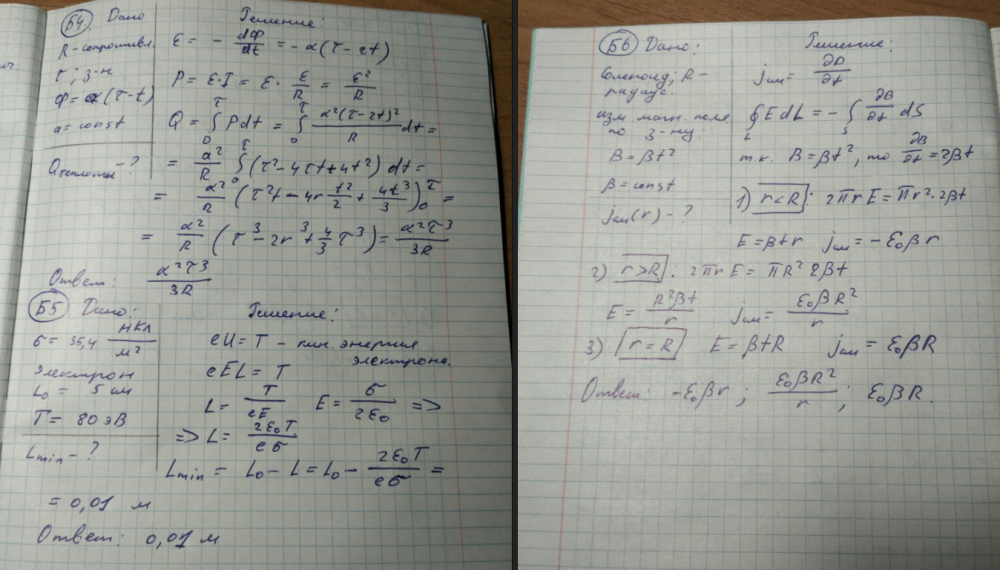 Б4. Дано
Решение:
R - сопротивл.
τ; з-н
Ф = α(τ-t)
a = const
Qтеплоты - ?
ε = - dФ/dt = - α(τ-2t)
P = ε·I = ε · ε/R = ε²/R
Q = ∫₀^τ Pdt = ∫₀^τ α²(τ-2t)²/R dt =
= a²/R ∫₀^τ (τ² - 4τt + 4t²) dt =
= α²/R (τ²t - 4τ t²/2 + 4t³/3)₀^τ =
= α²/R (τ³ - 2τ³ + 4/3 τ³) = α²τ³/3R
Ответ: α²τ³/3R
Б5 Дано:
Решение:
σ = 35,4 нКл/м²
электрон
L₀ = 5 см
T = 80 эВ
Lmin - ?
eU = T - кин. энергия
электрона.
eEL = T
L = T/eE E = σ/2ε₀ =>
=> L = 2ε₀T/eσ
Lmin = L₀ - L = L₀ - 2ε₀T/eσ =
= 0,01 м
Ответ: 0,01 м
Б6 Дано:
Решение:
Соленоид; R -
радиус.
изм магн. поле
по з-ну:
B = βt²
β = const
jсм(r) - ?
jсм = ∂D/∂t
∮_L E dL = - ∫_S ∂B/∂t dS
т.к. B = βt², то ∂B/∂t = 2βt
1) r < R : 2πr E = πr²·2βt
E = βtr jсм = - ε₀βr
2) r > R : 2πr E = πR² 2βt
E = R²βt/r jсм = ε₀βR²/r
3) r = R E = βtR jсм = ε₀βR
Ответ: -ε₀βr ; ε₀βR²/r ; ε₀βR.